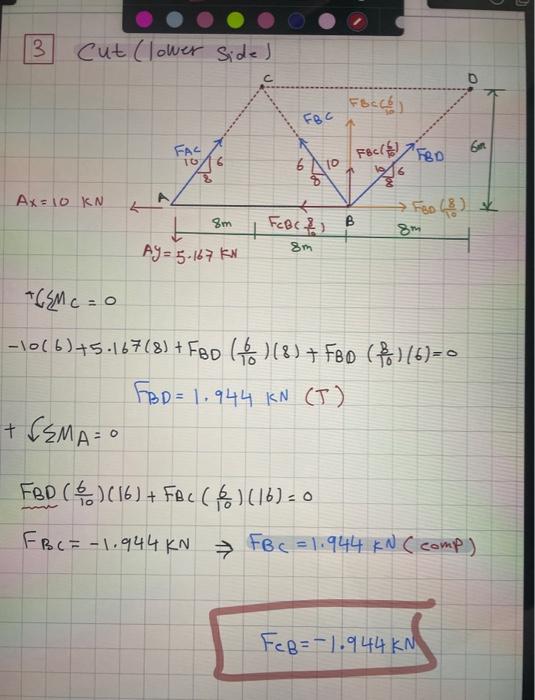 3 Cut (lower side)
C
D
FBC(6/10)
FBC
FAC
10 6
8
6 10
8
FBC(6/10)
FBD
10 6
8
6m
A
Ax = 10 KN
B
FBD(8/10)
8m
FCB(8/10)
8m
8m
Ay = 5.167 KN
+↺ΣMC = 0
-10(6)+5.167(8)+FBD(6/10)(8)+FBD(8/10)(6)=0
FBD = 1.944 KN (T)
+ ↺ΣMA = 0
FBD(6/10)(16)+FBC(6/10)(16)=0
FBC = -1.944 KN ⇒ FBC = 1.944 KN (comp)
FCB = -1.944 KN